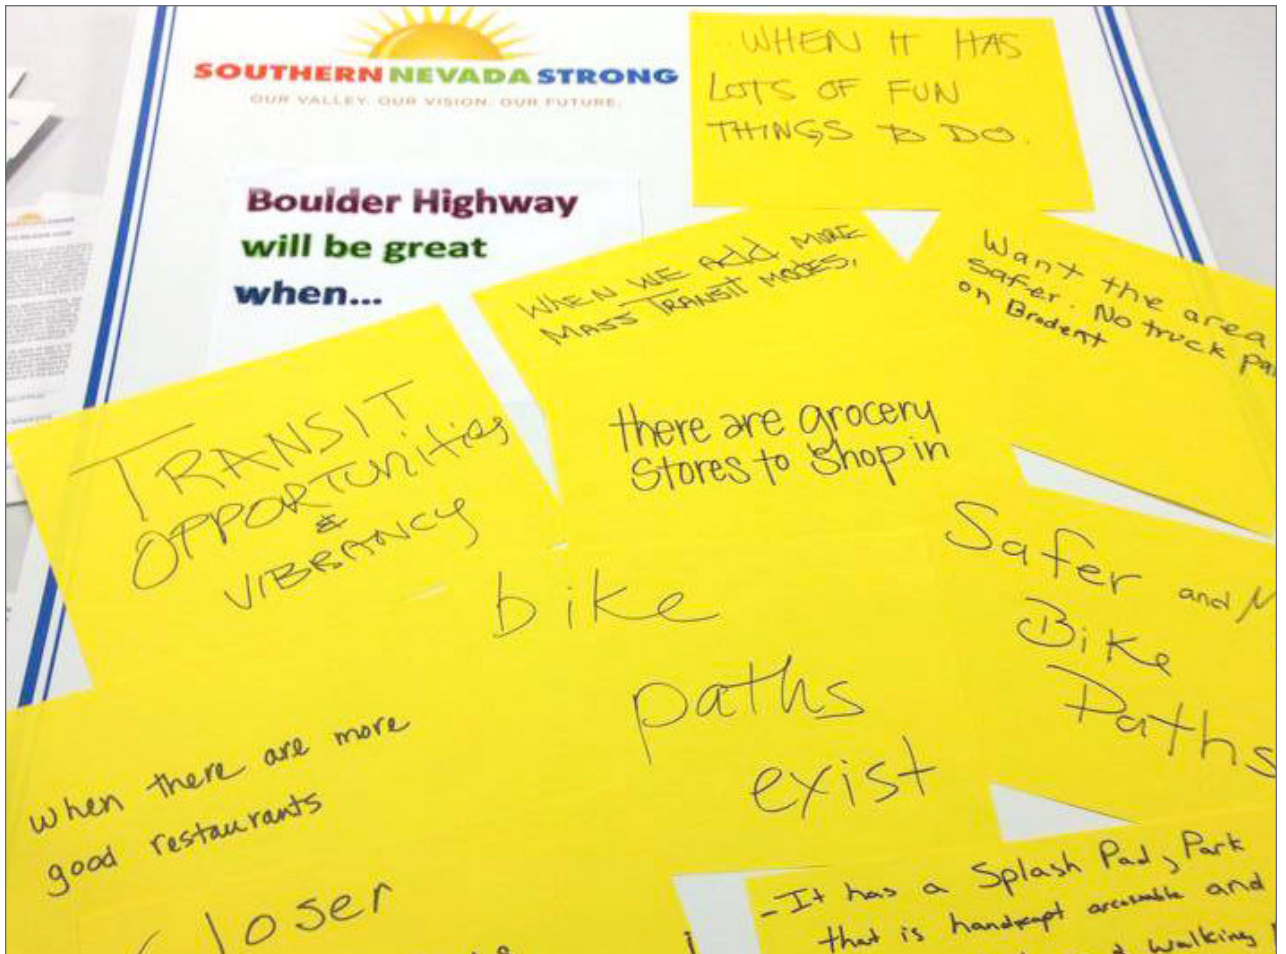 SOUTHERN NEVADA STRONG
OUR VALLEY. OUR VISION. OUR FUTURE.
Boulder Highway
will be great
when...
WHEN IT HAS
LOTS OF FUN
THINGS TO DO.
WHEN WE ADD MORE
MASS TRANSIT MODES.
Want the area
safer. No truck
on Brodent
TRANSIT
OPPORTUNITIES
&
VIBRANCY
there are grocery
Stores to Shop in
Safer and
Bike
Paths
bike
paths
exist
when there are more
good restaurants
Closer
- It has a Splash Pad, Park
that is handicapt and
walking